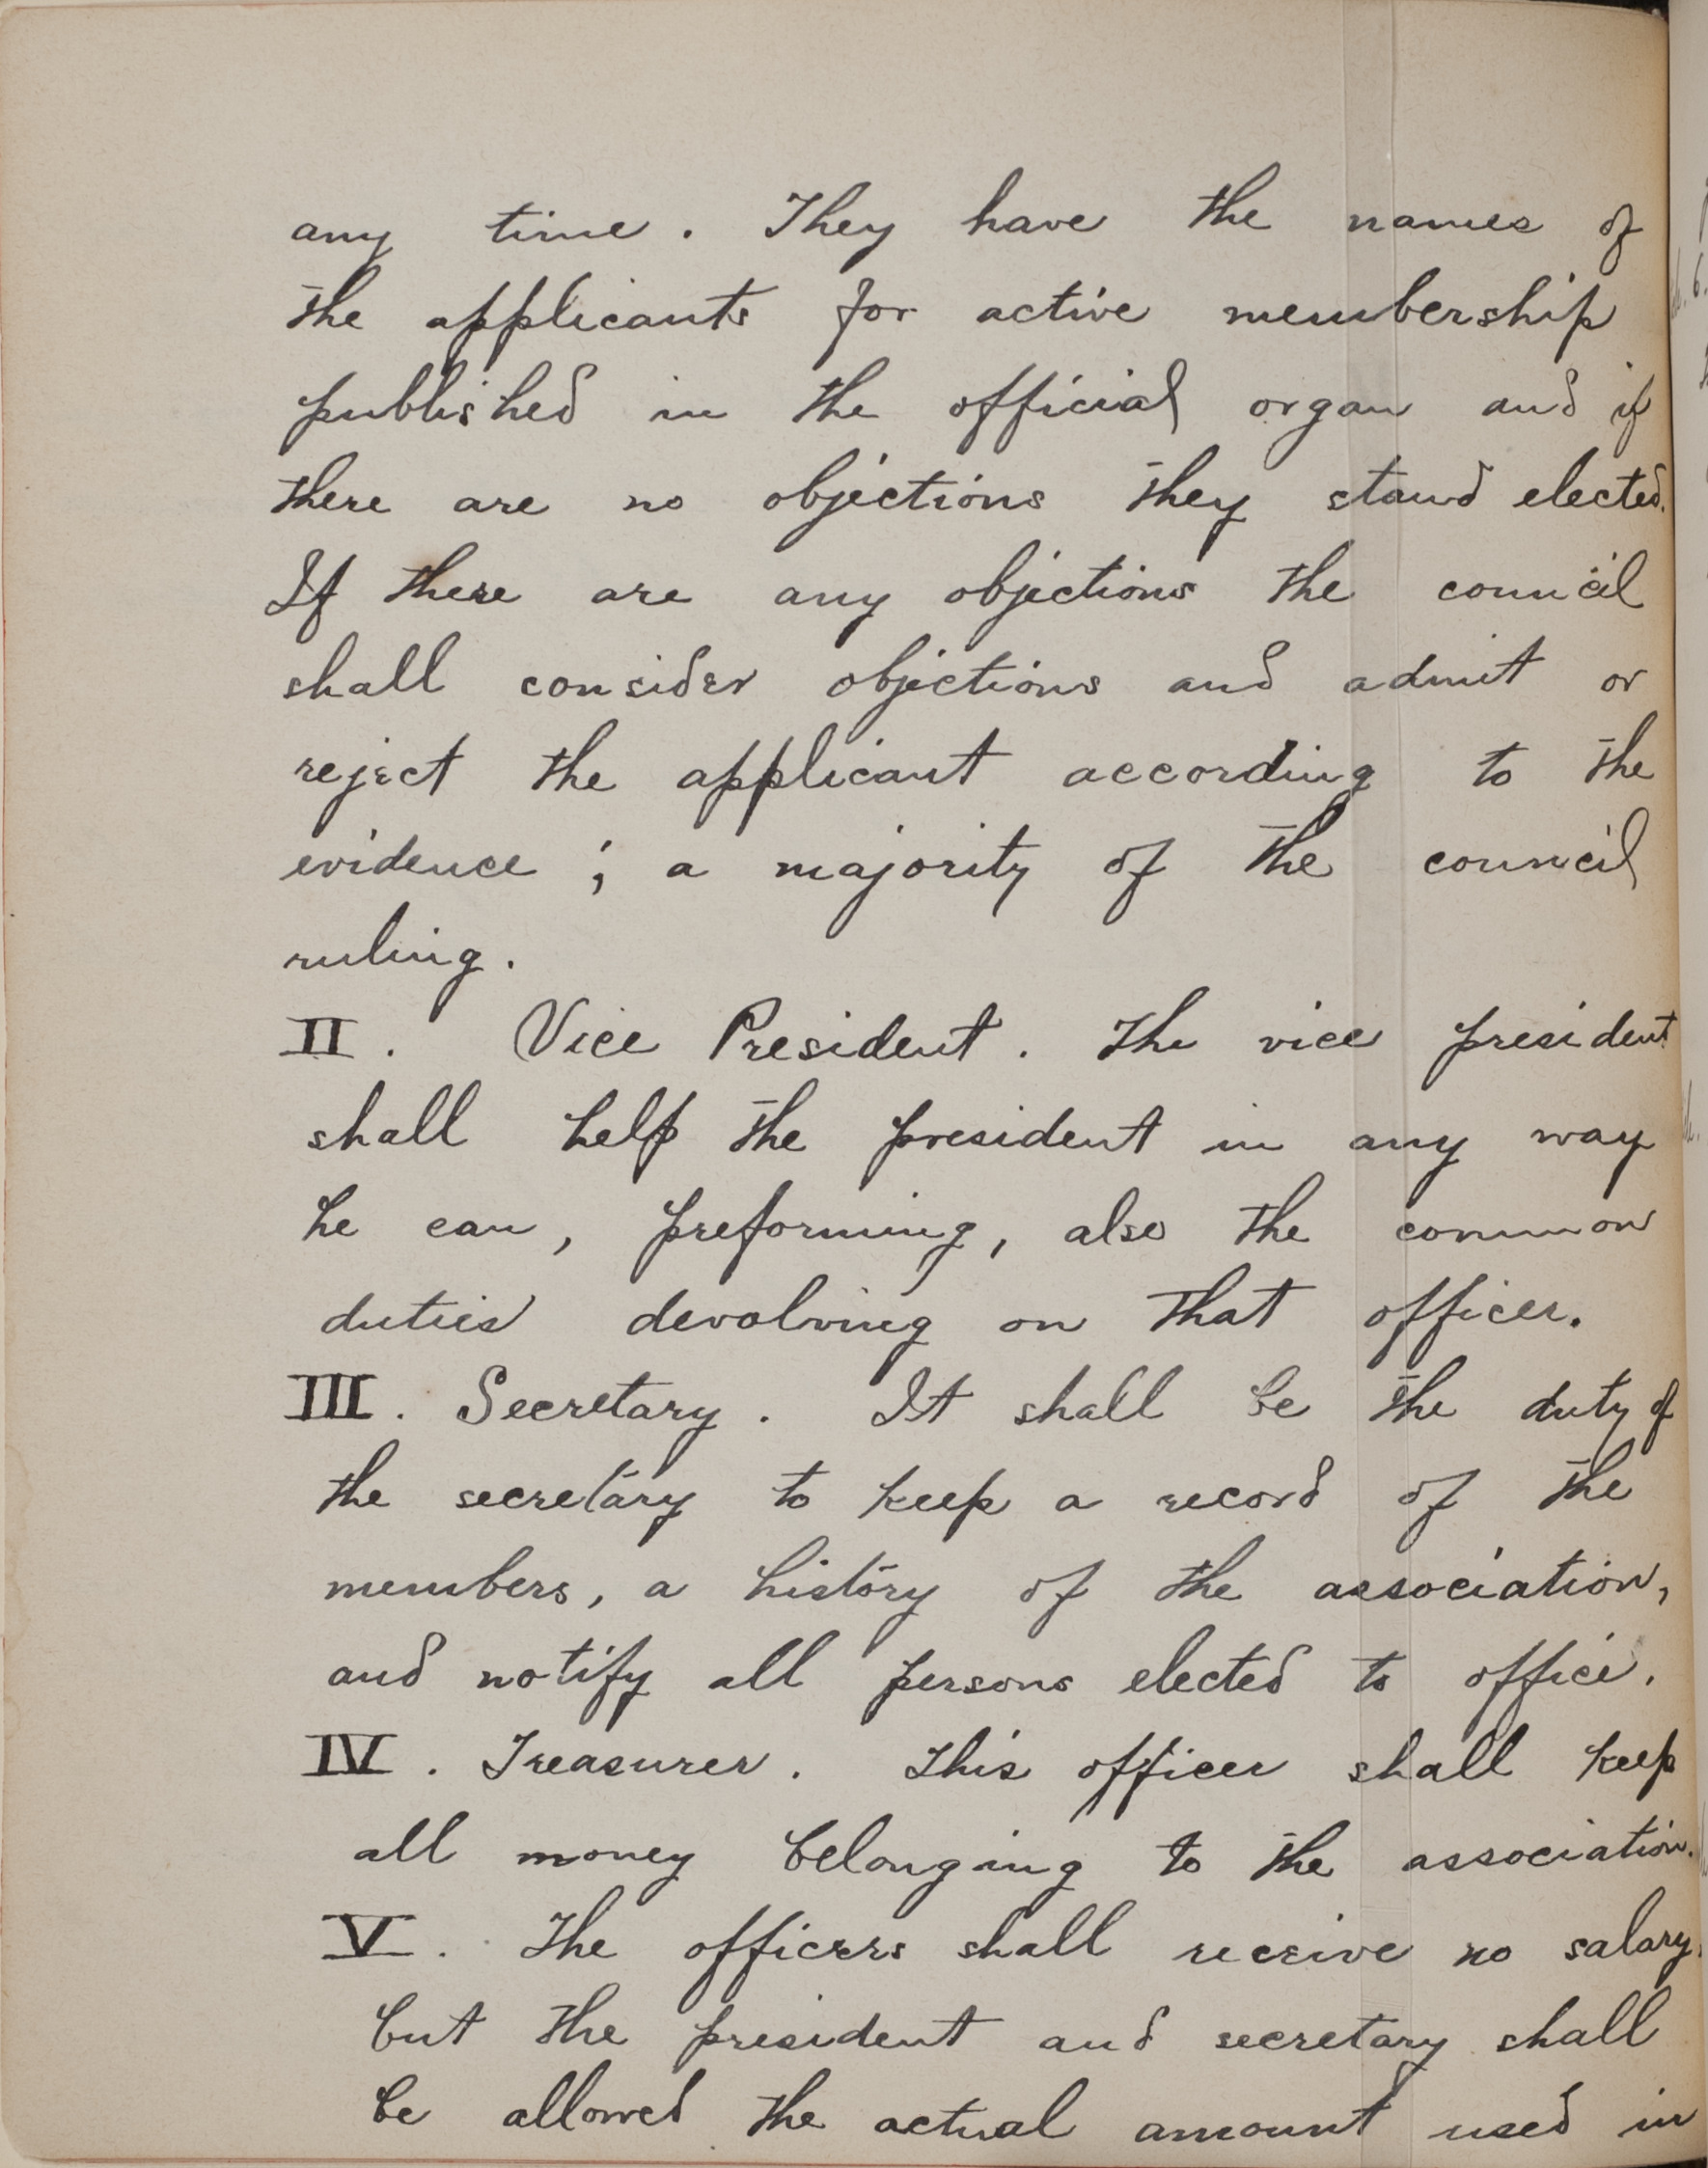 any time. They have the names of
the applicants for active membership
published in the official organ and if
there are no objections they stand elected.
If there are any objections the council
shall consider objections and admit or
reject the applicant according to the
evidence ; a majority of the council
ruling.
II. Vice President. The vice president
shall help the president in any way
he can, preforming, also the common
duties devolving on that officer.
III. Secretary. It shall be the duty of
the secretary to keep a record of the
members, a history of the association,
and notify all persons elected to office.
IV. Treasurer. This officer shall keep
all money belonging to the association.
V. The officers shall receive no salary,
but the president and secretary shall
be allowed the actual amount used in